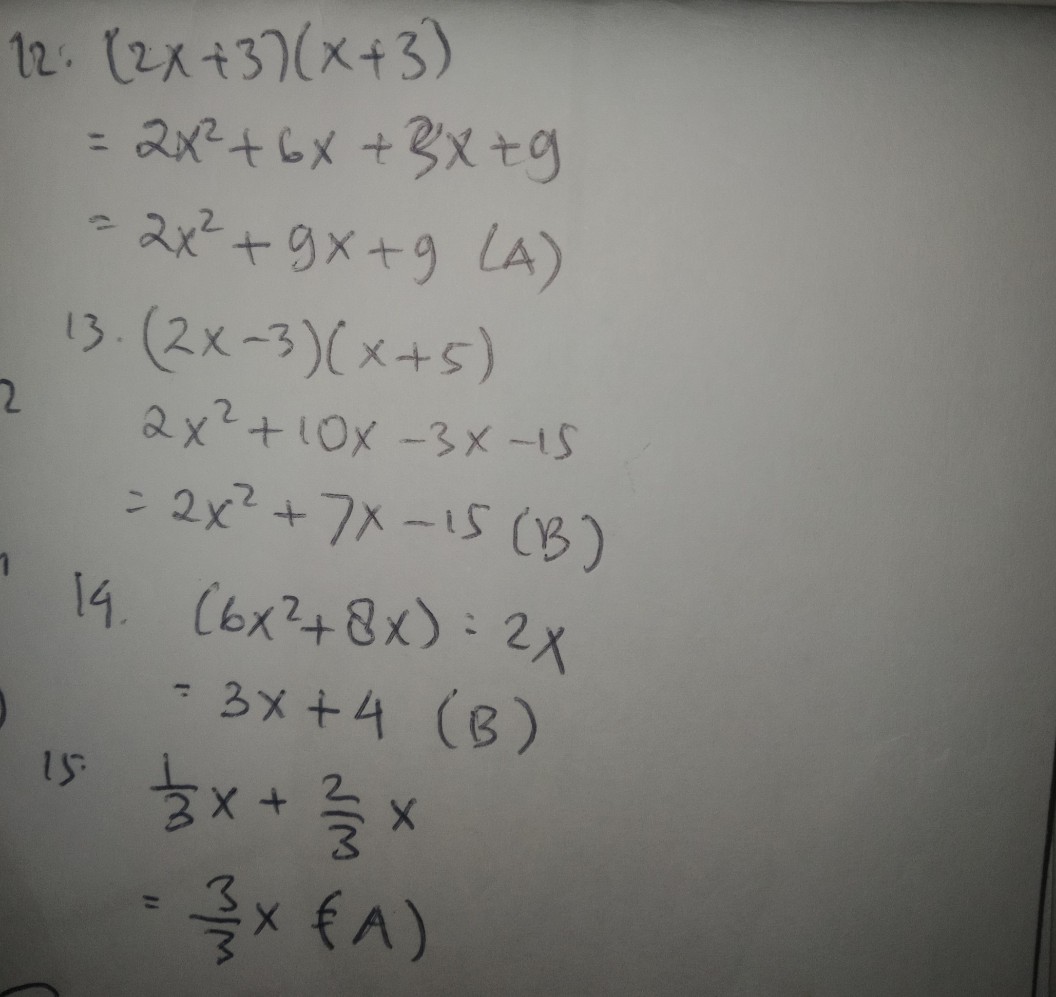 12. (2x+3)(x+3)
= 2x²+6x+3x+9
= 2x²+9x+9 (A)
13. (2x-3)(x+5)
2x²+10x-3x-15
= 2x²+7x-15 (B)
14. (6x²+8x) : 2x
= 3x+4 (B)
15. 1/3 x + 2/3 x
= 3/3 x (A)